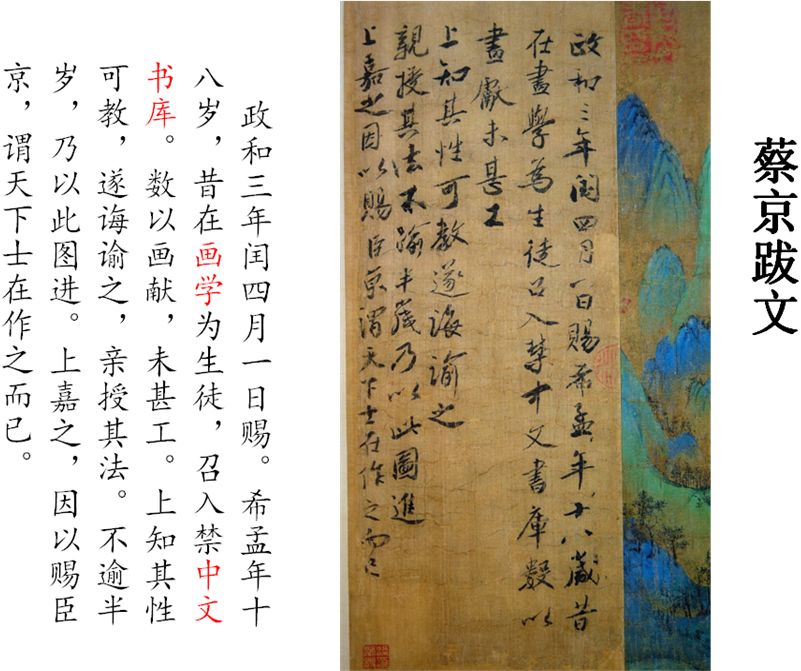 蔡京跋文
政和三年閏四月一日賜希孟年十八歲昔
在畫學為生徒召入禁中文書庫數以
畫獻未甚工
上知其性可教遂誨諭之
親授其法不踰半歲乃以此圖進
上嘉之因以賜臣京謂天下士在作之而已
政和三年闰四月一日赐。希孟年十
八岁，昔在画学为生徒，召入禁中文
书库。数以画献，未甚工。上知其性
可教，遂诲谕之，亲授其法。不逾半
岁，乃以此图进。上嘉之，因以赐臣
京，谓天下士在作之而已。